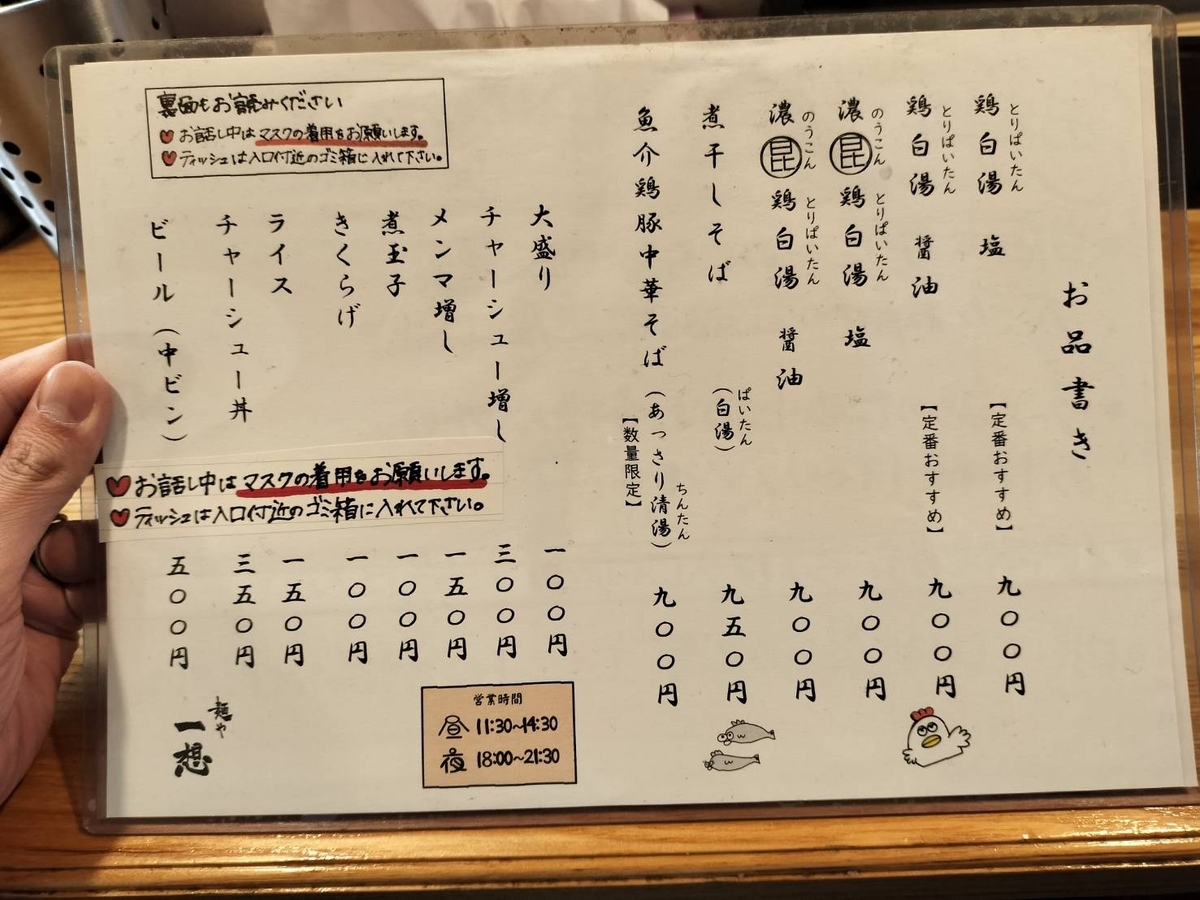 お品書き
鶏白湯 塩 【定番おすすめ】 九〇〇円
とりぱいたん
鶏白湯 醤油 【定番おすすめ】 九〇〇円
とりぱいたん
濃昆鶏白湯 塩 九〇〇円
のうこん とりぱいたん
濃昆鶏白湯 醤油 九〇〇円
のうこん とりぱいたん
煮干しそば (白湯) 九五〇円
ぱいたん
魚介鶏豚中華そば (あっさり清湯) 九〇〇円
ちんたん
【数量限定】
大盛り 一〇〇円
チャーシュー増し 三〇〇円
メンマ増し 一五〇円
煮玉子 一〇〇円
きくらげ 一〇〇円
ライス 一五〇円
チャーシュー丼 三五〇円
ビール (中ビン) 五〇〇円
裏面もお読みください
お話し中はマスクの着用をお願いします。
ティッシュは入口付近のゴミ箱に入れて下さい。
お話し中はマスクの着用をお願いします。
ティッシュは入口付近のゴミ箱に入れて下さい。
営業時間
昼 11:30~14:30
夜 18:00~21:30
麺や
一想